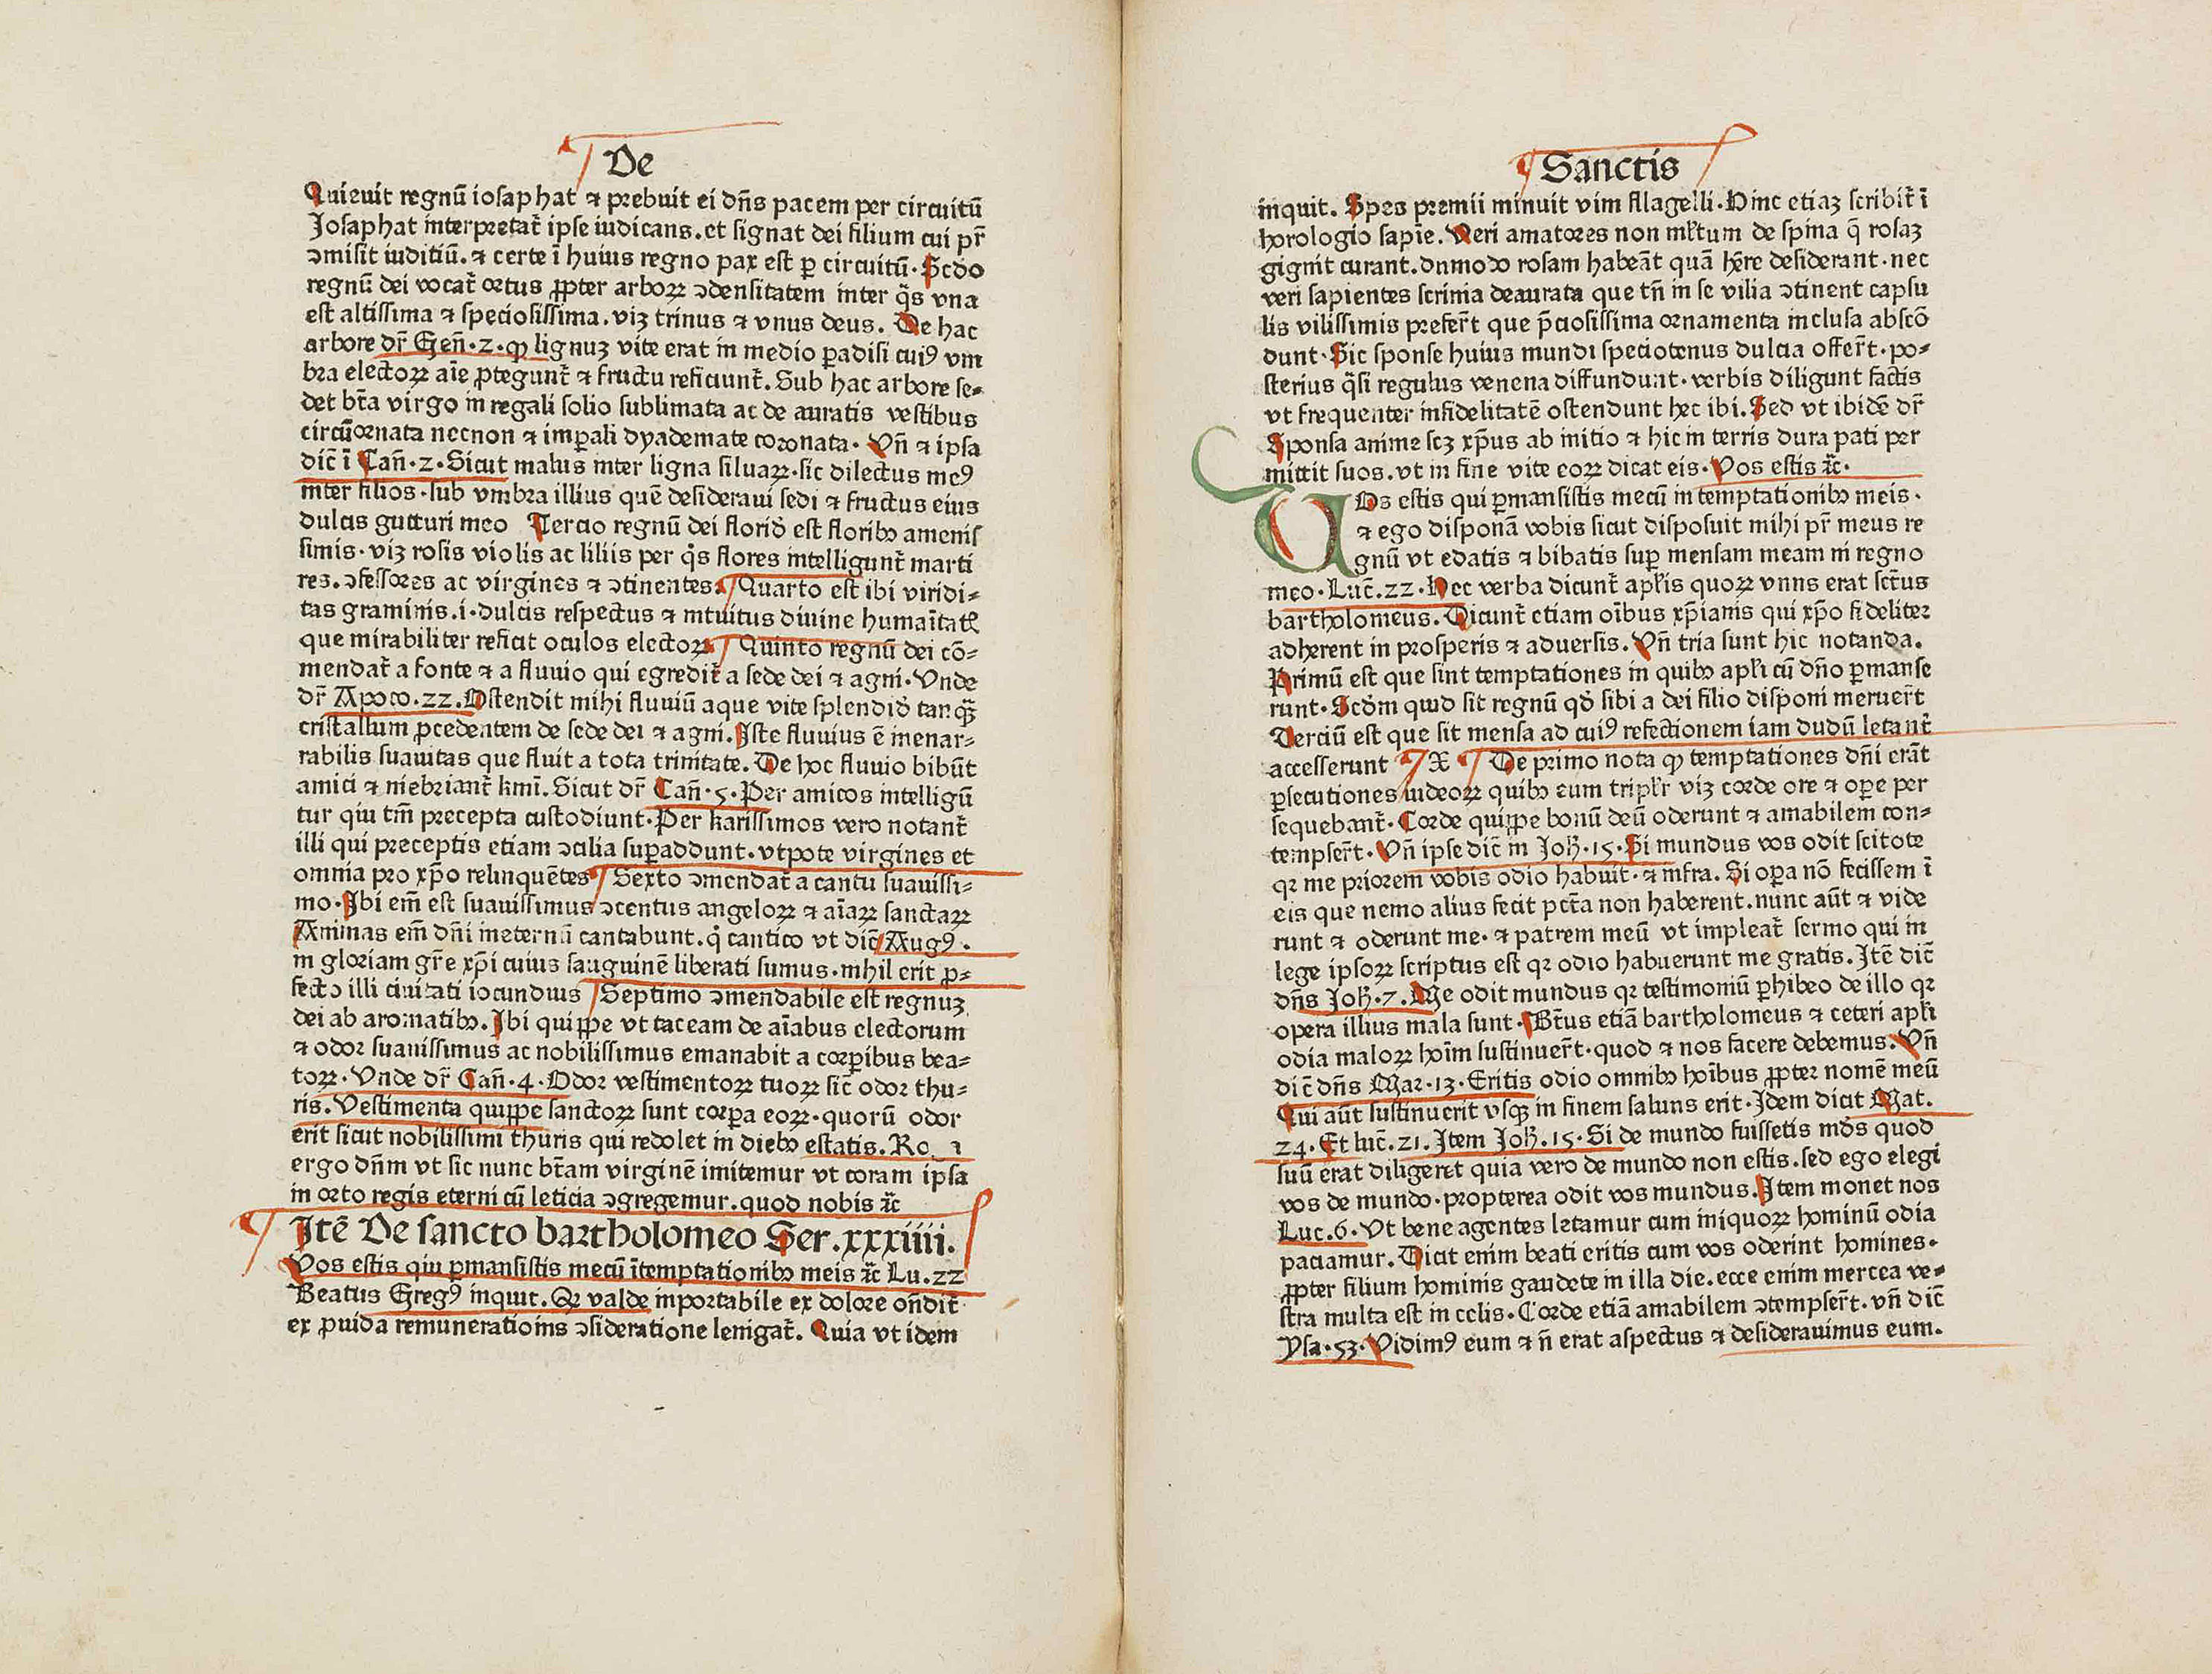 De
Quieuit regnū iosaphat ⁊ prebuit ei dn̄s pacem per circuitū
Josaphat interpretat᷑ ipse iudicans. et signat dei filium cui pr̄
ꝯmisit iuditiū. ⁊ certe ī huius regno pax est ꝑ circuitū. Scd̓o
regnū dei vocat᷑ ortus ꝓpter arboꝝ ꝯdensitatem inter q̄s vna
est altissima ⁊ speciosissima. viꝫ trinus ⁊ vnus deus. De hac
arbore dr̄ Gen̄. 2. ꝙ lignuꝫ vite erat in medio ꝑadisi cuiꝰ vm
bra electoꝝ aīe ꝓtegunt᷑ ⁊ fructu reficiunt᷑. Sub hac arbore se⸗
det bt̄a virgo in regali solio sublimata ac de auratis vestibus
circūornata necnon ⁊ imꝑali dyademate coronata. Vn̄ ⁊ ipsa
dic̄ ī Can̄. 2. Sicut malus inter ligna siluaꝝ. sic dilectus meꝰ
inter filios. sub vmbra illius quē desideraui sedi ⁊ fructus eius
dulcis gutturi meo Tercio regnū dei florid̓ est floribꝫ amenis
simis. viꝫ rosis violis ac liliis per q̄s flores intelligunt᷑ marti
res. ꝯfessores ac virgines ⁊ ꝯtinentes. ¶ Quarto est ibi viridi⸗
tas graminis. i. dulcis respectus ⁊ intuitus diuine humaītatꝭ
que mirabiliter reficit oculos electoꝝ ¶ Quinto regnū dei cō⸗
mendat᷑ a fonte ⁊ a fluuio qui egredit᷑ a sede dei ⁊ agni. Vnde
dr̄ Apoco. 22. Ostendit mihi fluuiū aque vite splendid̓ tanqꝫ
cristallum ꝓcedentem de sede dei ⁊ agni. Iste fluuius ē inenar⸗
rabilis suauitas que fluit a tota trinitate. De hoc fluuio bibūt
amici ⁊ inebriant᷑ kmī. Sicut dr̄ Can̄. 5. Per amicos intelligū
tur qui tm̄ precepta custodiunt. Per karissimos vero notant᷑
illi qui preceptis etiam ꝯcilia suꝑaddunt. vtpote virgines et
omnia pro xp̄o relinquētes ¶ Sexto ꝯmendat᷑ a cantu suauissi⸗
mo. Ibi em̄ est suauissimus ꝯcentus angeloꝝ ⁊ aīaꝝ sanctaꝝ
Animas em̄ dn̄i ineternū cantabunt. q̄ cantico vt dic̄ Augꝰ.
in gloriam gr̄e xp̄i cuius sanguinē liberati sumus. nihil erit ꝓ⸗
fecto illi ciuitati iocundius ¶ Septimo ꝯmendabile est regnuꝫ
dei ab aromatibꝫ. Ibi quippe vt taceam de aīabus electorum
⁊ odor suauissimus ac nobilissimus emanabit a corꝑibus bea⸗
toꝝ. Vnde dr̄ Can̄. 4. Odor vestimentoꝝ tuoꝝ sic̄ odor thu⸗
ris. Vestimenta quippe sanctoꝝ sunt corꝑa eoꝝ. quorū odor
erit sicut nobilissimi thuris qui redolet in diebꝫ estatis.
ergo dn̄m vt sic nunc bt̄am virginē imitemur vt coram ipsa
in orto regis eterni cū leticia ꝯgregemur. quod nobis ⁊c̄
¶ Itē De sancto bartholomeo Ser. xxxiiii.
Vos estis qui ꝑmansistis mecū ītemptationibꝫ meis ⁊c̄ Lu. 22
Beatus Gregꝰ inquit. Qꝛ valde inportabile ex dolore on̄dit᷑
ex ꝓuida remuneratioins ꝯsideratione lenigat᷑. Quia vt idem
¶ Sanctis
inquit. Spes premii minuit vim fllagelli. Hinc etiaꝫ scribit᷑ ī
horologio sapīe. Veri amatores non ml̓tum de spina q̄ rosaꝫ
gignit curant. dnmodo rosam habeāt quā hr̄e desiderant. nec
veri sapientes scrinia deaurata que tn̄ in se vilia ꝯtinent capsu
lis vilissimis prefer̄t que p̄ciosissima ornamenta inclusa abscō
dunt. Sic sponse huius mundi speciotenus dulcia offer̄t. po⸗
sterius q̄si regulus venena diffundunt. verbis diligunt factis
vt frequenter infidelitatē ostendunt hec ibi. Sed vt ibidē dr̄
Sponsa anime scꝫ xp̄us ab initio ⁊ hic in terris dura pati per
mittit suos. vt in fine vite eoꝝ dicat eis. Vos estis ⁊c̄.
VOs estis qui ꝑmansistis mecū in temptationibꝫ meis.
⁊ ego disponā vobis sicut disposuit mihi pr̄ meus re
gnū vt edatis ⁊ bibatis suꝑ mensam meam in regno
meo. Luc̄. 22. Hec verba dicunt᷑ apl̓is quoꝝ vnns erat sct̄us
bartholomeus. Dicunt᷑ etiam oībus xp̄ianis qui xp̄o fideliter
adherent in prosperis ⁊ aduersis. Vn̄ tria sunt hic notanda.
Primū est que sint temptationes in quibꝫ apl̓i cū dn̄o ꝑmanse
runt. Scd̓m quid sit regnū qd̓ sibi a dei filio disponi meruer̄t
Terciū est que sit mensa ad cuiꝰ refectionem iam dudū letant᷑
accesserunt ¶ X ¶ De primo nota ꝙ temptationes dn̄i erāt
ꝑsecutiones iudeoꝝ quibꝫ eum tripl̓r viꝫ corde ore ⁊ oꝑe per
sequebant᷑. Corde quippe bonū deū oderunt ⁊ amabilem con⸗
tempser̄t. Vn̄ ipse dic̄ in Joh̄. 15. Si mundus vos odit scitote
qꝛ me priorem vobis odio habuit. ⁊ infra. Si oꝑa nō fecissem ī
eis que nemo alius fecit pct̄a non haberent. nunc aūt ⁊ vide
runt ⁊ oderunt me. ⁊ patrem meū vt impleat᷑ sermo qui in
lege ipsoꝝ scriptus est qꝛ odio habuerunt me gratis. Itē dic̄
dn̄s Joh̄. 7. Me odit mundus qꝛ testimoniū ꝑhibeo de illo qꝛ
opera illius mala sunt. Bt̄us etiā bartholomeus ⁊ ceteri apl̓i
odia maloꝝ hoīm sustinuer̄t. quod ⁊ nos facere debemus. Vn̄
dic̄ dn̄s Mar. 13. Eritis odio omnibꝫ hoībus ꝓpter nomē meū
Qui aūt sustinuerit vsqꝫ in finem saluns erit. Idem dicit Mat.
24. Et luc̄. 21. Item Joh̄. 15. Si de mundo fuissetis mūds quod
suū erat diligeret quia vero de mundo non estis. sed ego elegi
vos de mundo. propterea odit vos mundus. Item monet nos
Luc. 6. Vt bene agentes letamur cum iniquoꝝ hominū odia
paciamur. Dicit enim beati eritis cum vos oderint homines.
ꝓpter filium hominis gaudete in illa die. ecce enim mercea ve⸗
stra multa est in celis. Corde etiā amabilem ꝯtempser̄t. vn̄ dic̄
Ysa. 53. Vidimꝰ eum ⁊ n̄ erat aspectus ⁊ desiderauimus eum.